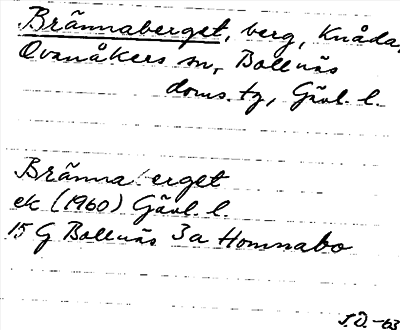 Brännaberget, berg, Knåda,
Ovanåkers sn, Bollnäs
doms. tg, Gävl. l.
Bränna erget
ek (1960) Gävl. l.
15 G Bollnäs 3a Homnabo
J.D. -63